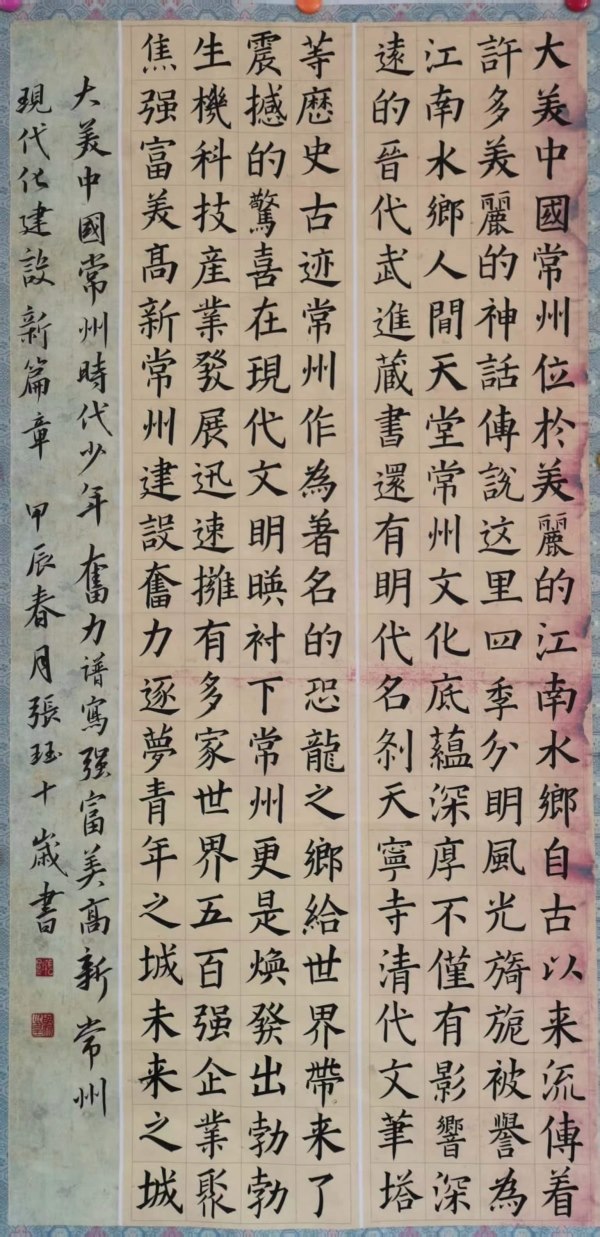 大美中國常州位於美麗的江南水鄉自古以来流傳着
許多美麗的神話傳說这里四季分明風光旖旎被譽為
江南水鄉人間天堂常州文化底蘊深厚不僅有影響深
遠的晉代武進藏書還有明代名刹天寧寺清代文筆塔
等歷史古迹常州作為著名的恐龍之鄉給世界帶来了
震撼的驚喜在現代文明暎衬下常州更是煥發出勃勃
生機科技産業發展迅速擁有多家世界五百强企業聚
焦强富美高新常州建設奮力逐夢青年之城未来之城
大美中國常州時代少年奮力谱寫强富美高新常州
現代化建設新篇章 甲辰春月張珏十歲書